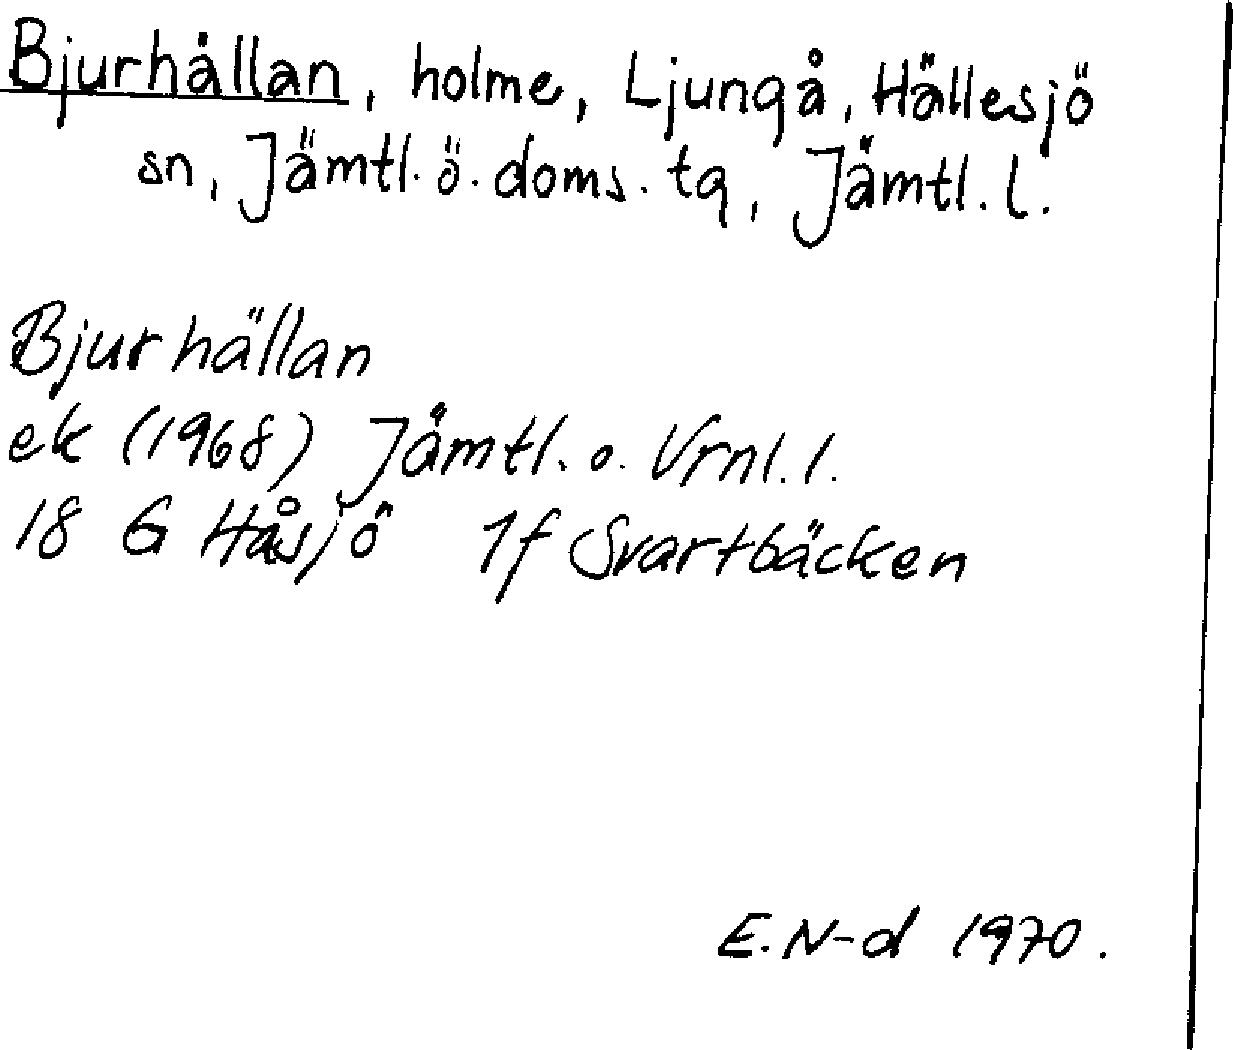 Bjurhällan, holme, Ljungå, Hällesjö
sn, Jämtl. ö. doms. tg, Jämtl. l.
Bjurhällan
ek (1968) Jämtl. o. Vrnl. l.
18 G Håsjö 1f Svartbäcken
E. N-d 1970.